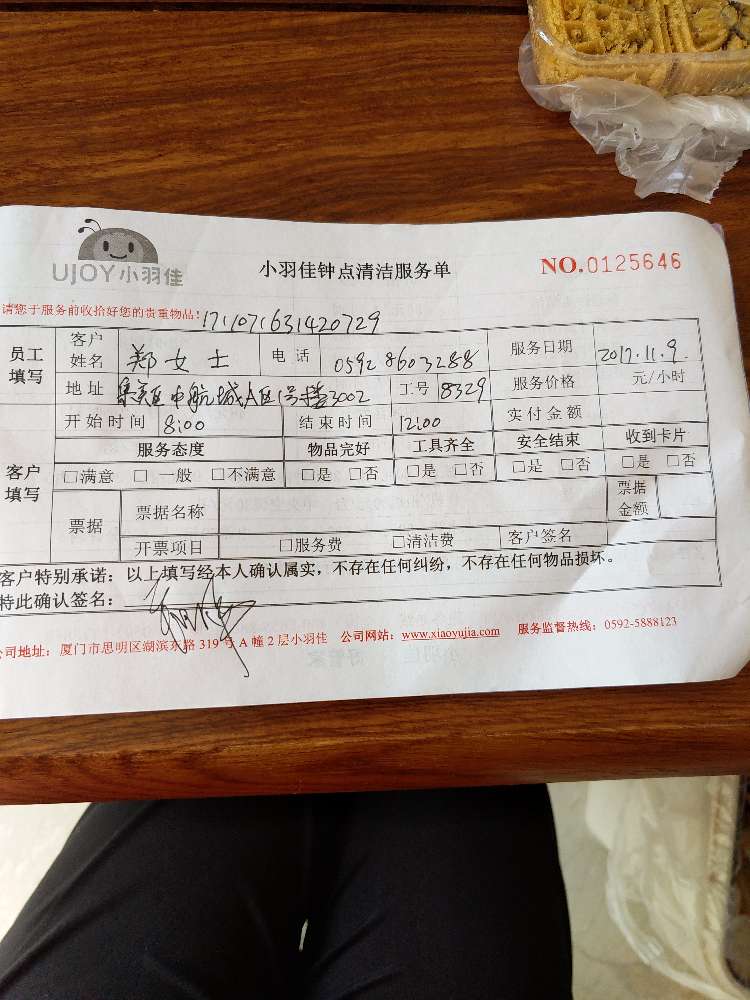 UJOY小羽佳
小羽佳钟点清洁服务单
NO.0125646
请您于服务前收拾好您的贵重物品!
171071631420729
员工填写 客户姓名 郑女士 电话 0592 8603288 服务日期 2017.11.9.
地址 集美区中航城A区1号楼3002 工号 8329 服务价格 元/小时
开始时间 8:00 结束时间 12:00 实付金额
客户填写 服务态度 物品完好 工具齐全 安全结束 收到卡片
□满意 □一般 □不满意 □是 □否 □是 □否 □是 □否 □是 □否
票据 票据名称 票据金额
开票项目 □服务费 □清洁费 客户签名
客户特别承诺：以上填写经本人确认属实，不存在任何纠纷，不存在任何物品损坏。
特此确认签名：
公司地址：厦门市思明区湖滨东路 319 号 A 幢 2 层小羽佳 公司网站：www.xiaoyujia.com 服务监督热线：0592-5888123